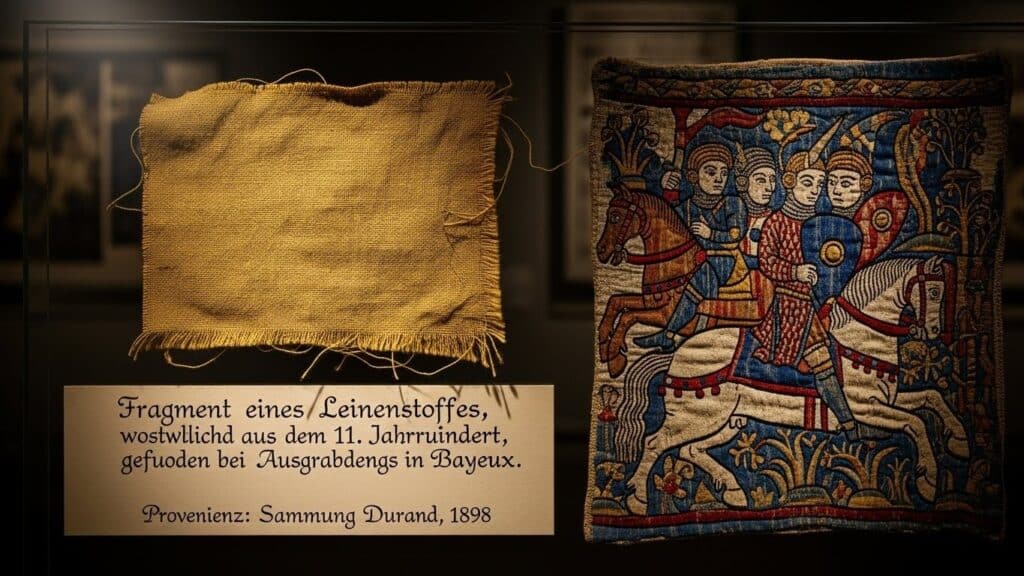 Fragment eines Leinenstoffes,
wostwllichd aus dem 11. Jahrruindert,
gefuoden bei Ausgrabdengs in Bayeux.
Provenienz: Sammung Durand, 1898